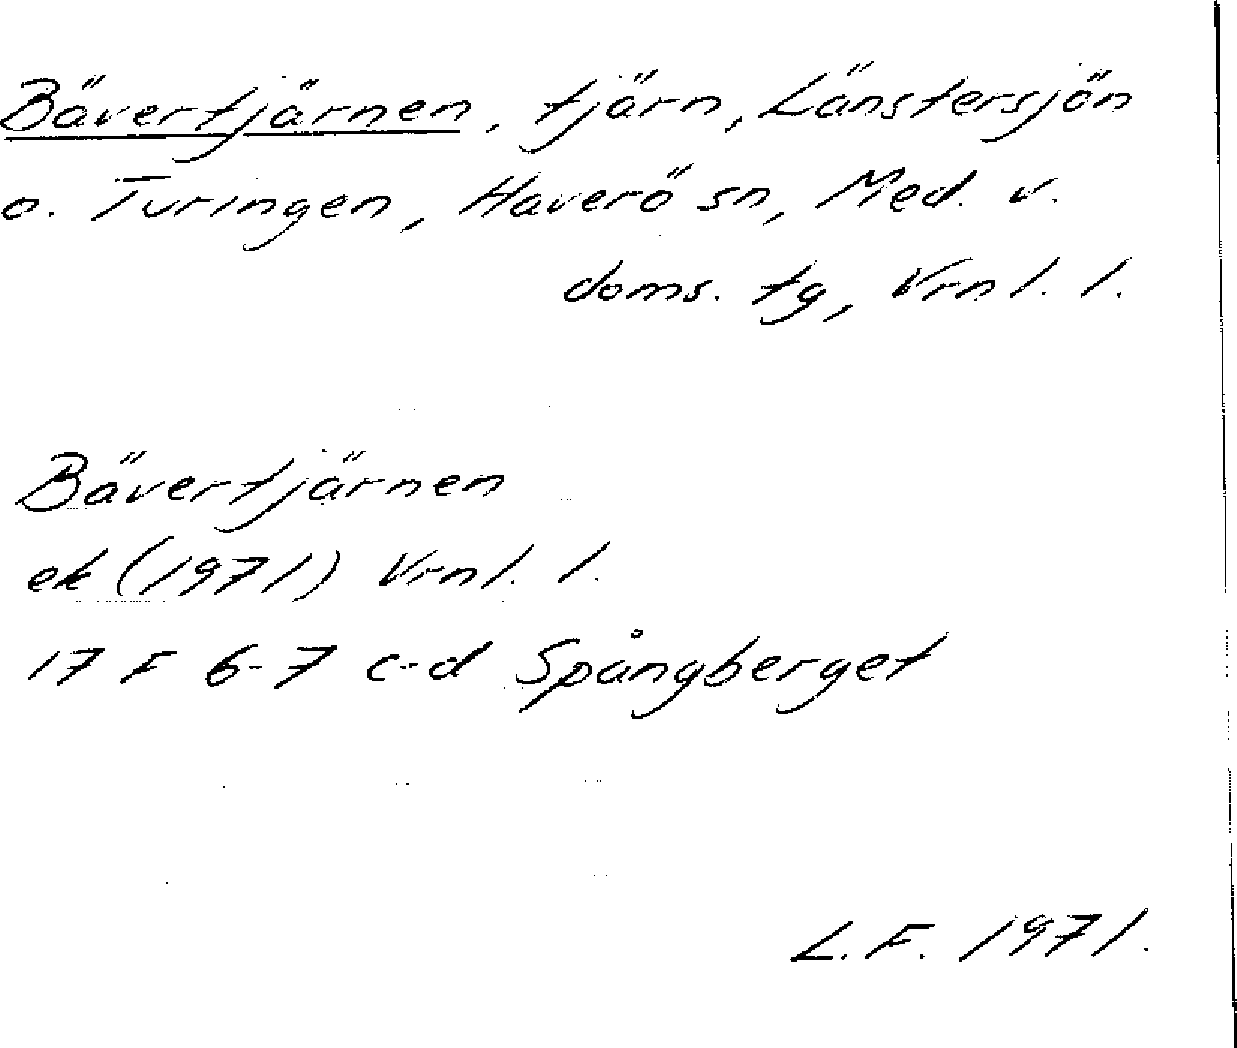 Bävertjärnen, tjärn, Länstersjön
o. Turingen, Haverö sn, Med. v.
doms. tg, Vrnl. l.
Bävertjärnen
ek (1971) Vrnl. l.
17 F 6-7 c-d Spångberget
L. F. 1971.